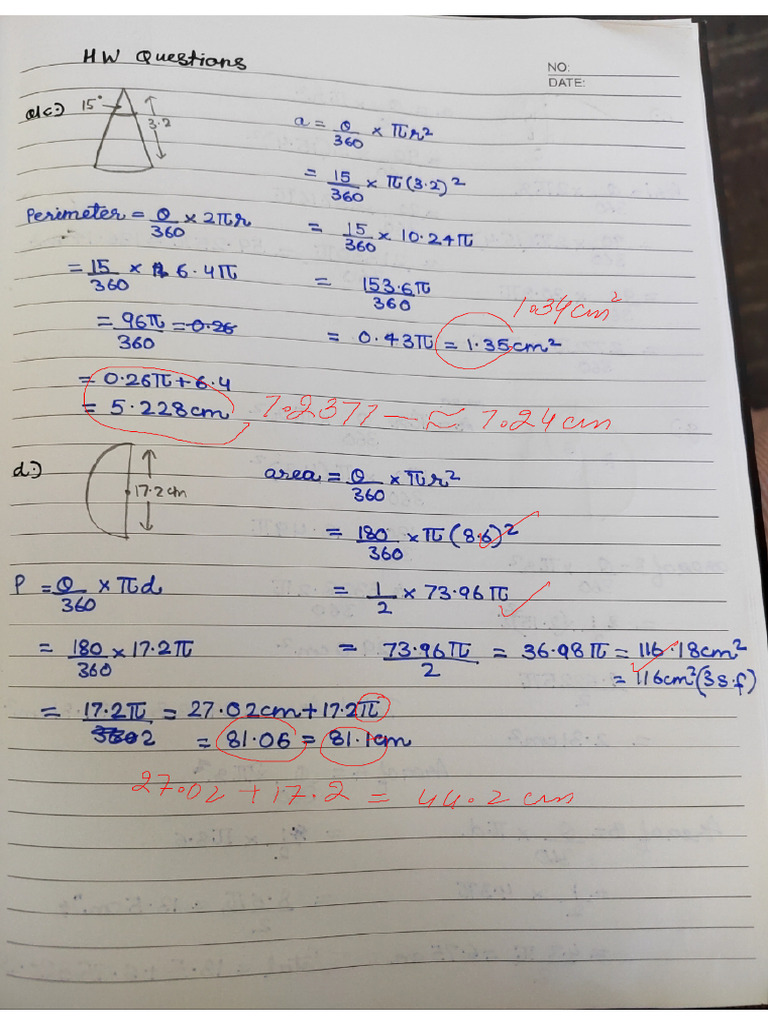 HW Questions
NO:
DATE:
Q1c:)
15°
3.2
a = θ/360 × πr²
= 15/360 × π(3.2)²
Perimeter = θ/360 × 2πr
= 15/360 × 10.24π
= 15/360 × 6.4π
= 153.6π/360
1.34cm²
= 96π/360 = 0.26
= 0.43π = 1.35cm²
= 0.26π + 6.4
= 5.228cm
7.2377 - ≈ 7.24cm
d:)
17.2cm
area = θ/360 × πr²
= 180/360 × π(8.6)²
P = θ/360 × πd
= 1/2 × 73.96π
= 180/360 × 17.2π
= 73.96π/2 = 36.98π = 116.18cm²
= 116cm²(3s.f)
= 17.2π/2 = 27.02cm + 17.2π
= 81.06 = 81.1cm
27.02 + 17.2 = 44.2cm